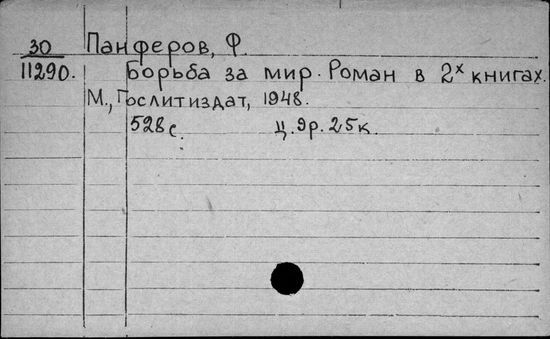 30 Панферов, Ф.
11290. Борьба за мир. Роман в 2х книгах.
М., Гослитиздат, 1948.
528 с. ц. 9р. 25к.